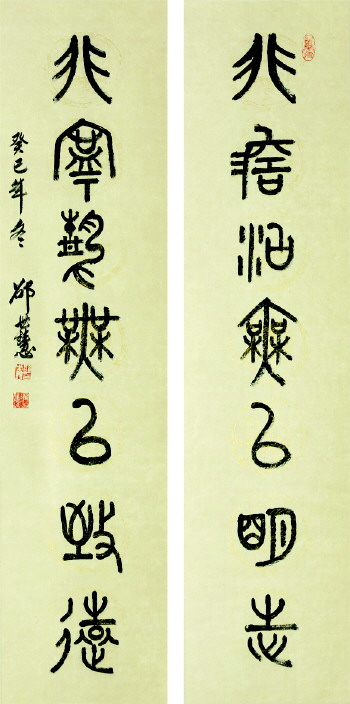 非澹泊無以明志
非寧靜無以致遠
癸巳年冬 邵世慧